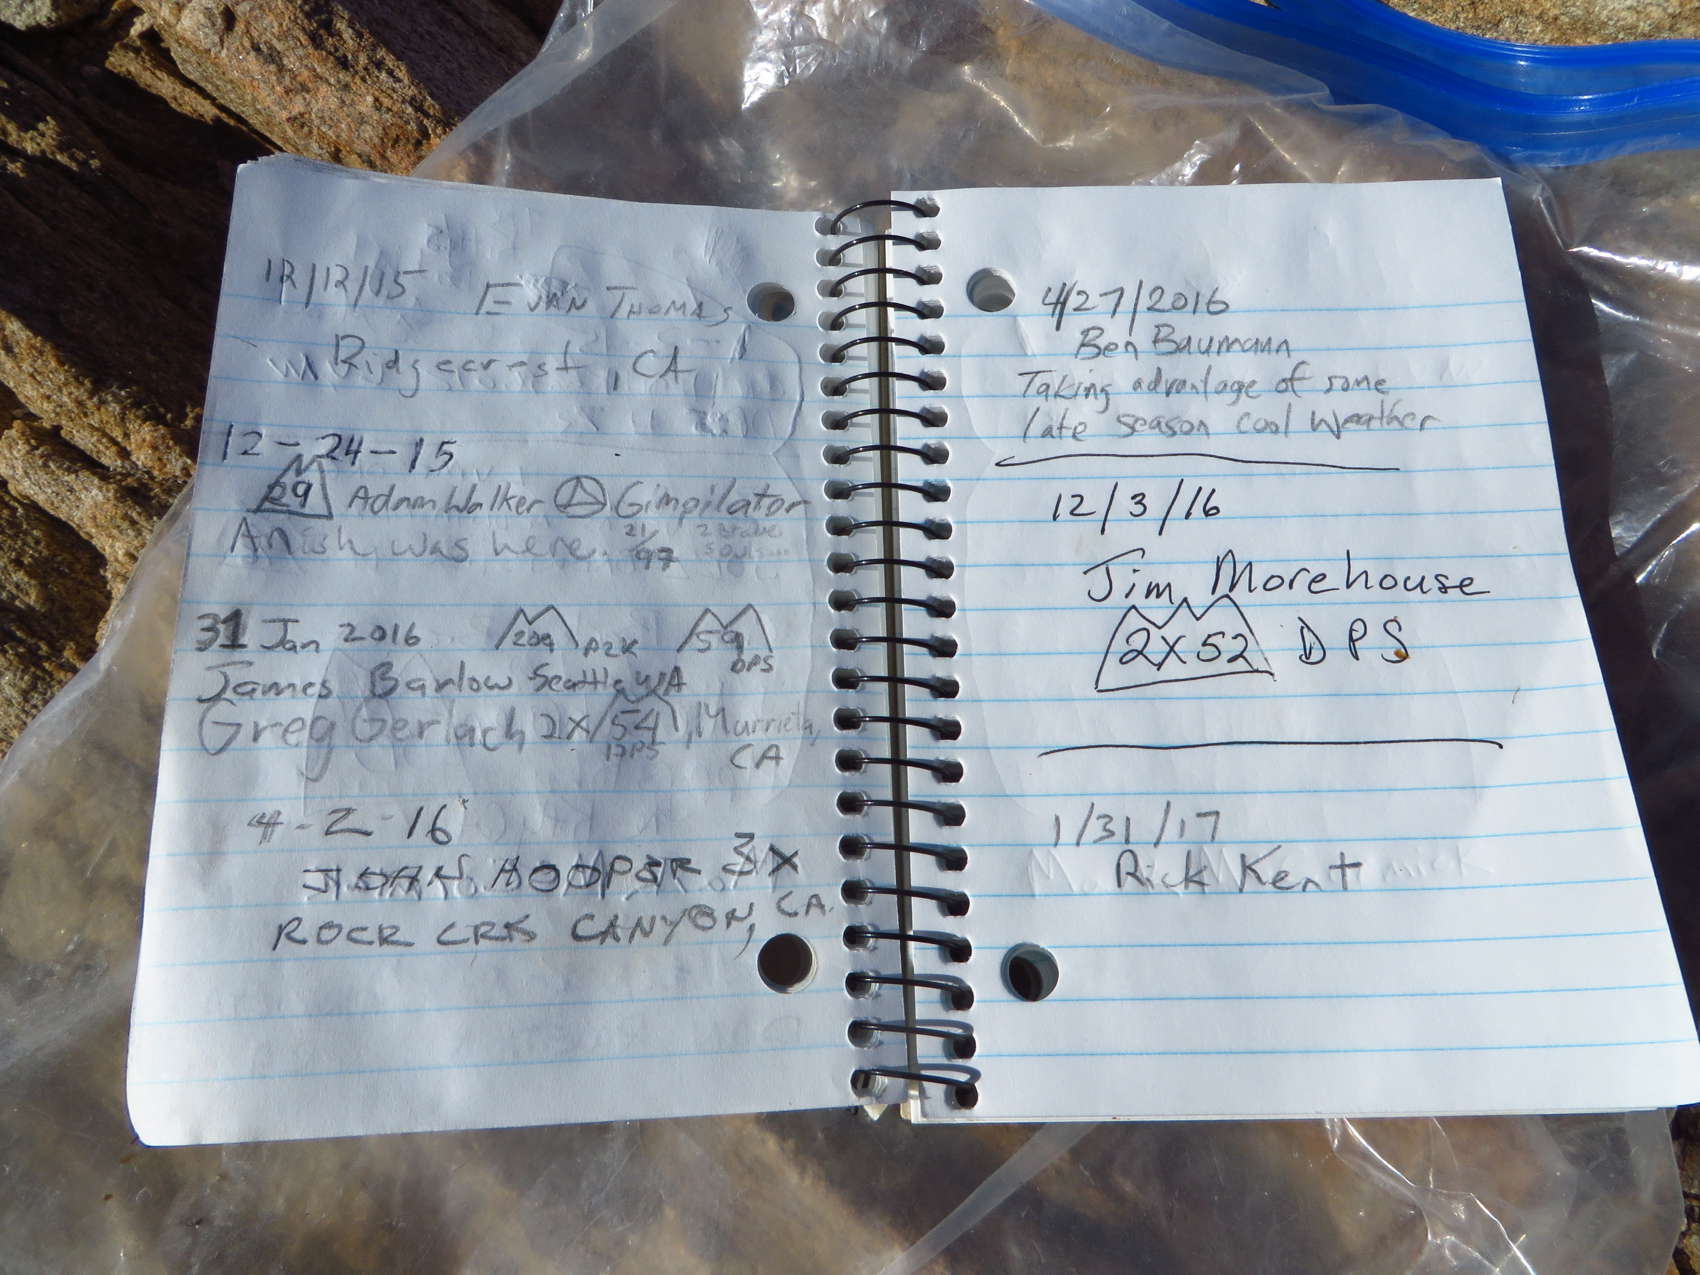 12/12/15 EVAN THOMAS
Ridgecrest, CA
12-24-15
29 Adam Walker Gimpilator
Anish was here. 21/97 2 brave souls...
31 Jan 2016 209 P2K 59 DPS
James Barlow Seattle WA
Greg Gerlach 2X 54 DPS, Murrieta, CA
4-2-16
HOOPER 3X
ROCK CRK CANYON, CA.
4/27/2016
Ben Baumann
Taking advantage of some
late season cool weather
12/3/16
Jim Morehouse
2X52 DPS
1/31/17
Rick Kent